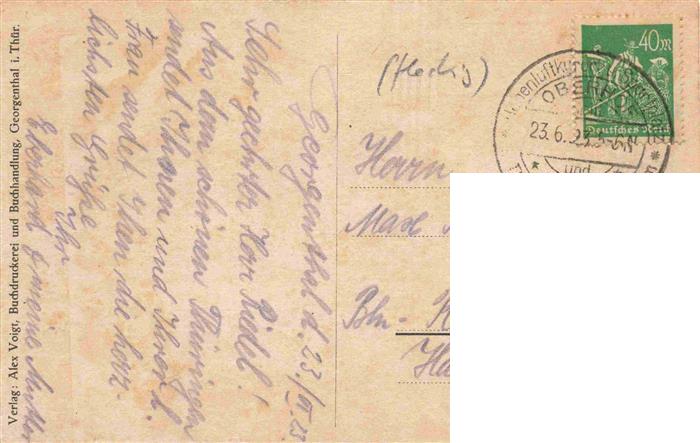 Verlag: Alex Voigt, Buchdruckerei und Buchhandlung, Georgenthal i. Thür.
Georgenthal d. 23/VI. 23
Sehr geehrter Herr Riedel!
Aus dem schönen Thüringen
sendet Ihnen und Ihrer l.
Frau endet Ihen die herz-
lichsten Grüße
Ihr
Eberhard & meine Mutter
(fleckig)
40 m
Deutsches Reich
Höhenluftkurort
OBERHOF
23.6.23
und
Herrn
Max
Bln-